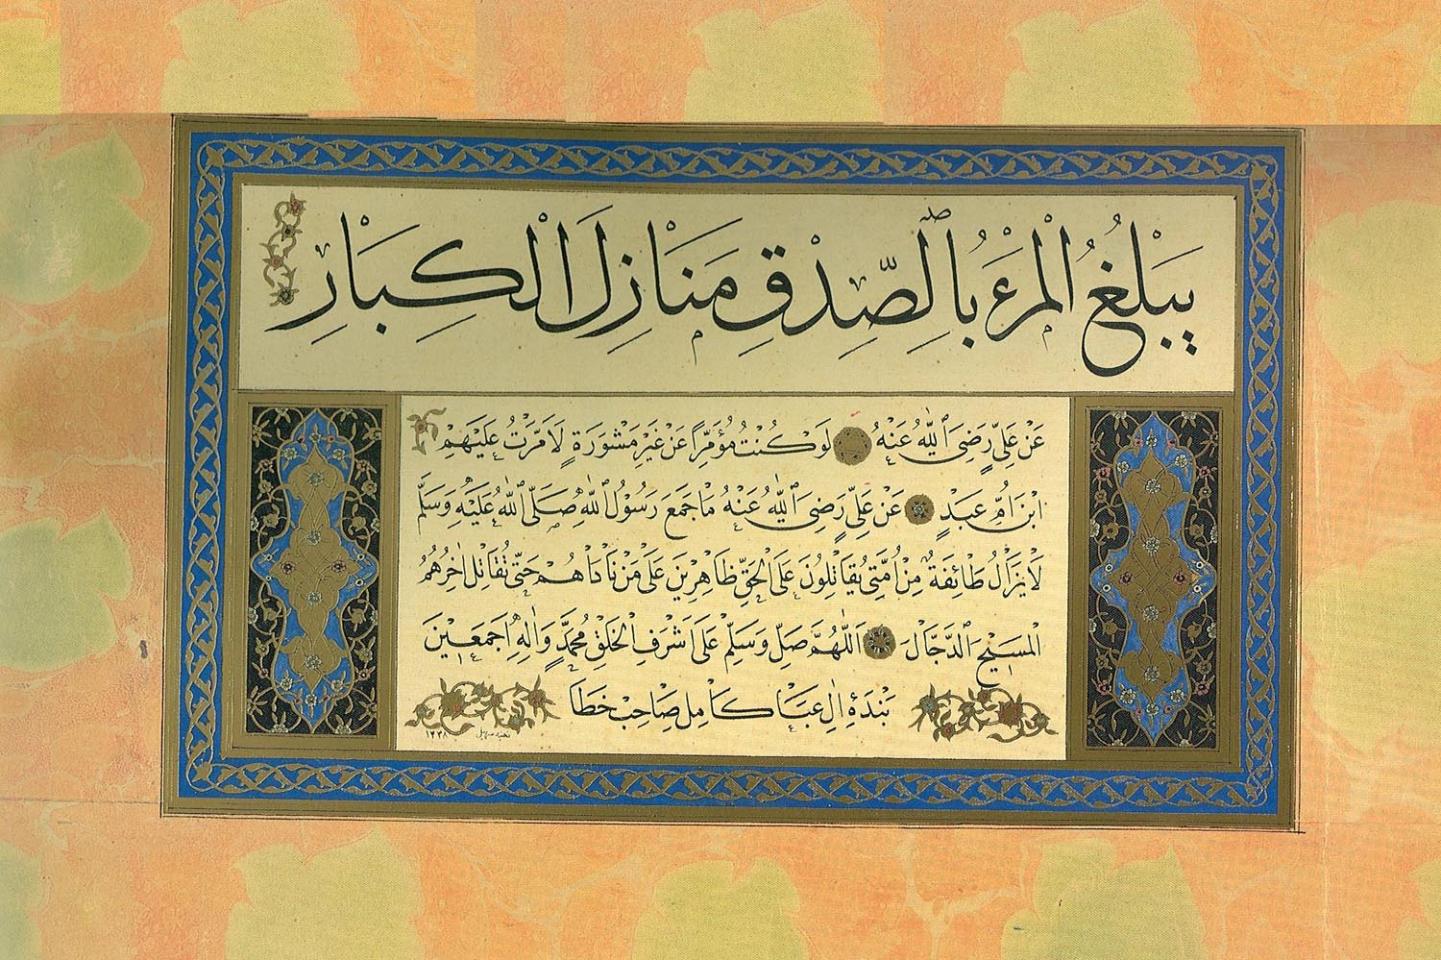 يَبْلُغُ الْمَرْءُ بِالصِّدْقِ مَنَازِلَ الْكِبَارِ
عَنْ عَلِيٍّ رَضِيَ اللّٰهُ عَنْهُ لَوْ كُنْتُ مُؤَمِّرًا عَنْ غَيْرِ مَشْوَرَةٍ لَاَمَّرْتُ عَلَيْهِمْ
ابْنَ اُمِّ عَبْدٍ عَنْ عَلِيٍّ رَضِيَ اللّٰهُ عَنْهُ مَا جَمَعَ رَسُوْلُ اللّٰهِ صَلَّى اللّٰهُ عَلَيْهِ وَسَلَّمَ
لَا يَزَالُ طَائِفَةٌ مِنْ اُمَّتِي يُقَاتِلُونَ عَلَى الْحَقِّ ظَاهِرِينَ عَلَى مَنْ نَادَاهُمْ حَتَّى تُقَاتِلَ اٰخِرُهُمُ
الْمَسِيْحَ الدَّجَّالَ اَللّٰهُمَّ صَلِّ وَسَلِّمْ عَلَى اَشْرَفِ الْخَلْقِ مُحَمَّدٍ وَاٰلِهِ اَجْمَعِيْنَ
بَنْدَهٔ اٰلِ عَبَا كَامِل صَاحِب خَطَا
١٤٣٨